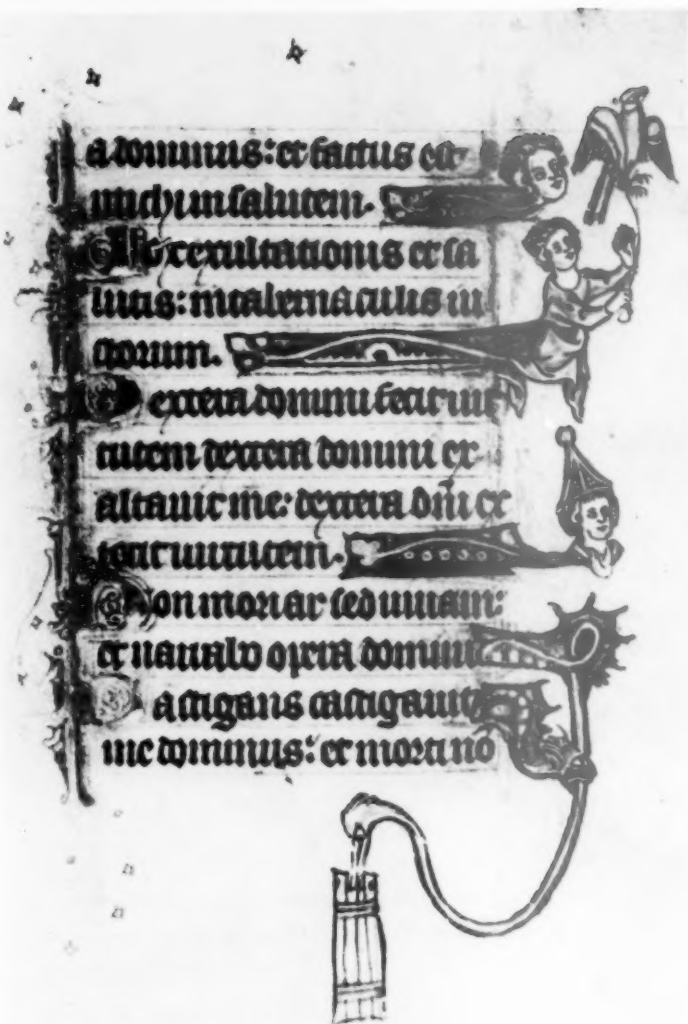 a dominus: et factus est
michi in salutem.
Vox exultationis et sa
lutis: in tabernaculis iu
storum.
Dextera domini fecit uir
tutem dextera domini ex
altauit me: dextera dñi fe
cit uirtutem.
Non moriar sed uiuam:
et narrabo opera domini
Castigans castigauit
me dominus: et morti no